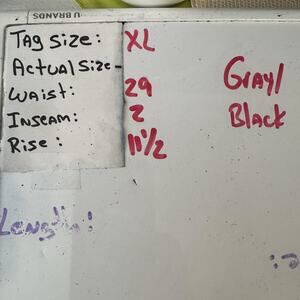 U BRANDS
Tag Size: XL
Actual Size-
Waist: 29
Inseam: 2
Rise: 11 1/2
Gray/
Black
Length: